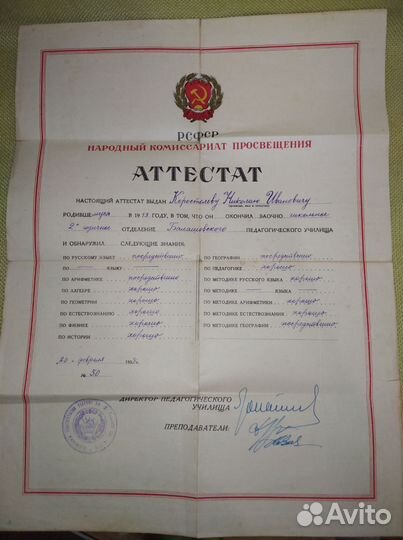 РСФСР
НАРОДНЫЙ КОМИССАРИАТ ПРОСВЕЩЕНИЯ
АТТЕСТАТ
НАСТОЯЩИЙ АТТЕСТАТ ВЫДАН Николаю Ивановичу
РОДИВШ В 1913 ГОДУ, В ТОМ, ЧТО ОН ОКОНЧИЛ ЗАОЧНО школьное
2х годичное ОТДЕЛЕНИЕ Балашовского ПЕДАГОГИЧЕСКОГО УЧИЛИЩА
И ОБНАРУЖИЛ СЛЕДУЮЩИЕ ЗНАНИЯ:
ПО РУССКОМУ ЯЗЫКУ посредственно
ПО — ЯЗЫКУ —
ПО АРИФМЕТИКЕ посредственно
ПО АЛГЕБРЕ хорошо
ПО ГЕОМЕТРИИ хорошо
ПО ЕСТЕСТВОЗНАНИЮ хорошо
ПО ФИЗИКЕ хорошо
ПО ИСТОРИИ хорошо
ПО ГЕОГРАФИИ посредственно
ПО ПЕДАГОГИКЕ хорошо
ПО МЕТОДИКЕ РУССКОГО ЯЗЫКА хорошо
ПО МЕТОДИКЕ — ЯЗЫКА —
ПО МЕТОДИКЕ АРИФМЕТИКИ хорошо
ПО МЕТОДИКЕ ЕСТЕСТВОЗНАНИЯ хорошо
ПО МЕТОДИКЕ ГЕОГРАФИИ посредственно
20 февраля
№ 50
ДИРЕКТОР ПЕДАГОГИЧЕСКОГО
УЧИЛИЩА
ПРЕПОДАВАТЕЛИ:
Avito